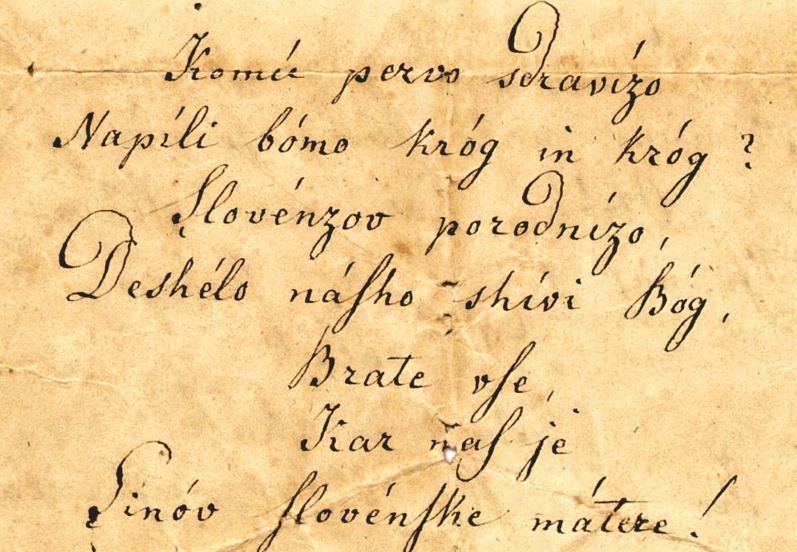 Komú pervo sdravízo
Napíli bómo króg in króg?
Slovénzov porodnízo,
Deshélo náſho shívi Bóg,
Brate vſe,
Kar naſ je
Sinóv ſlovénſke mátere!